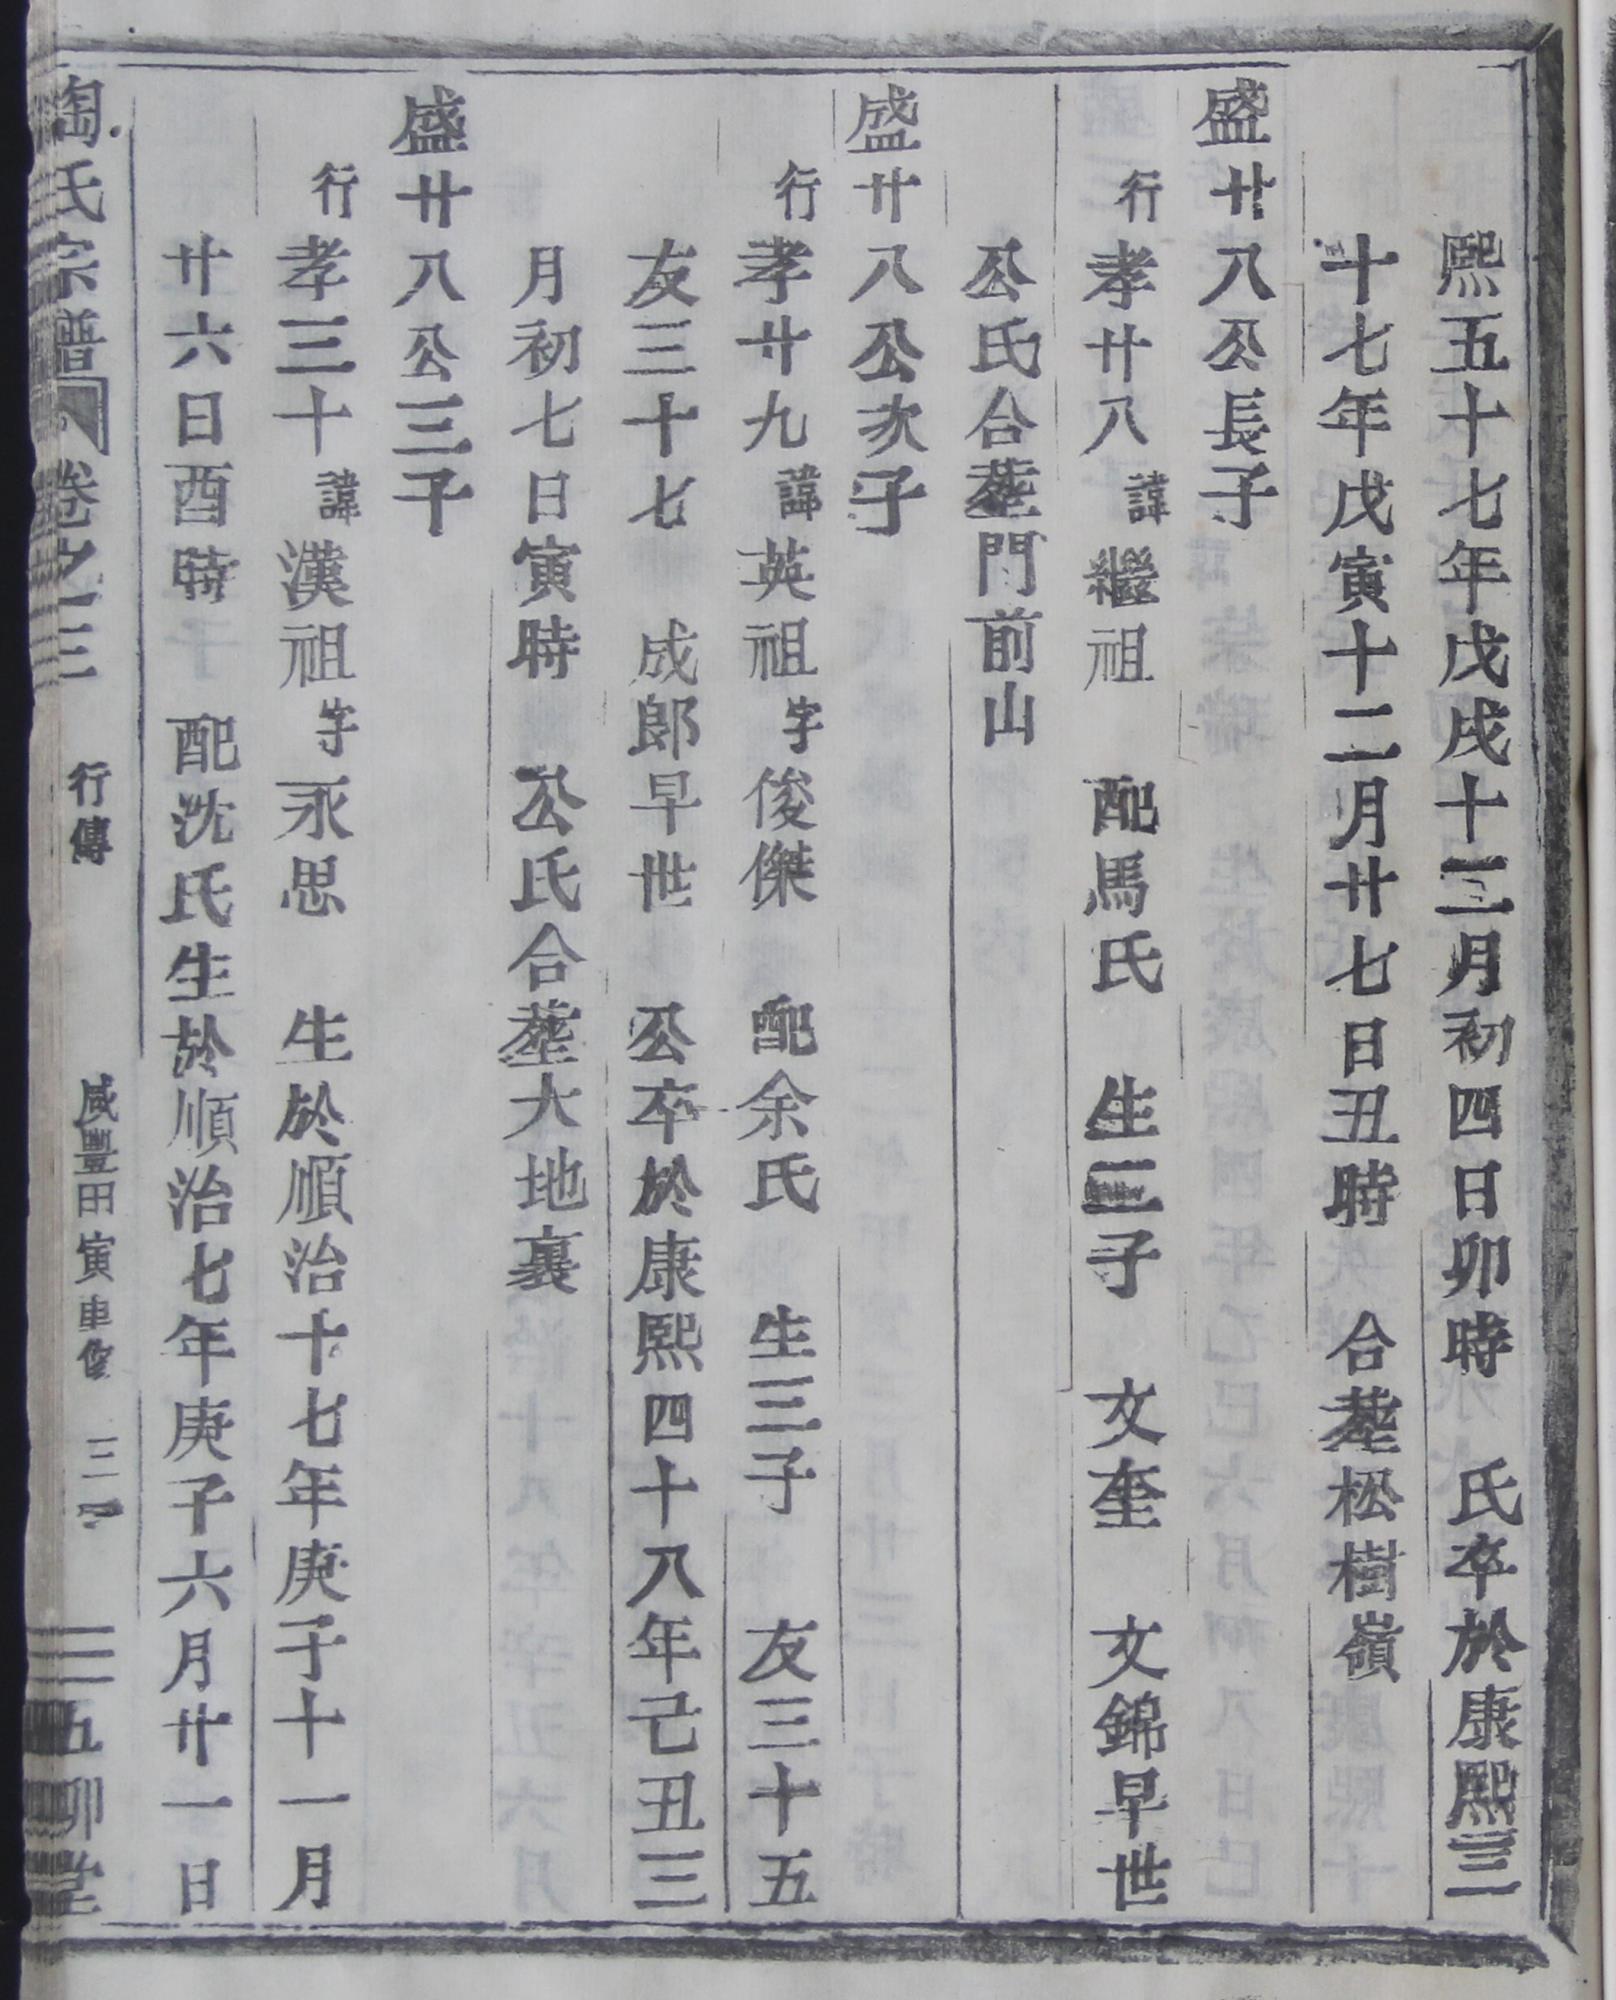 熙五十七年戊戌十二月初四日卯時　氏卒於康熙三
十七年戊寅十二月廿七日丑時　合塟松樹嶺
盛廿八公長子
行孝廿八諱繼祖　配馬氏　生三子　文奎　文錦早世
公氏合塟門前山
盛廿八公次子
行孝廿九諱英祖字俊傑　配余氏　生三子　友三十五
友三十七　成郎早世　公卒於康熙四十八年己丑三
月初七日寅時　公氏合塟大地裏
盛廿八公三子
行孝三十諱漢祖字永思　生於順治十七年庚子十一月
廿六日酉時　配沈氏生於順治七年庚子六月廿一日
陶氏宗譜　卷之三　行傳　咸豐甲寅重修　三　五柳堂